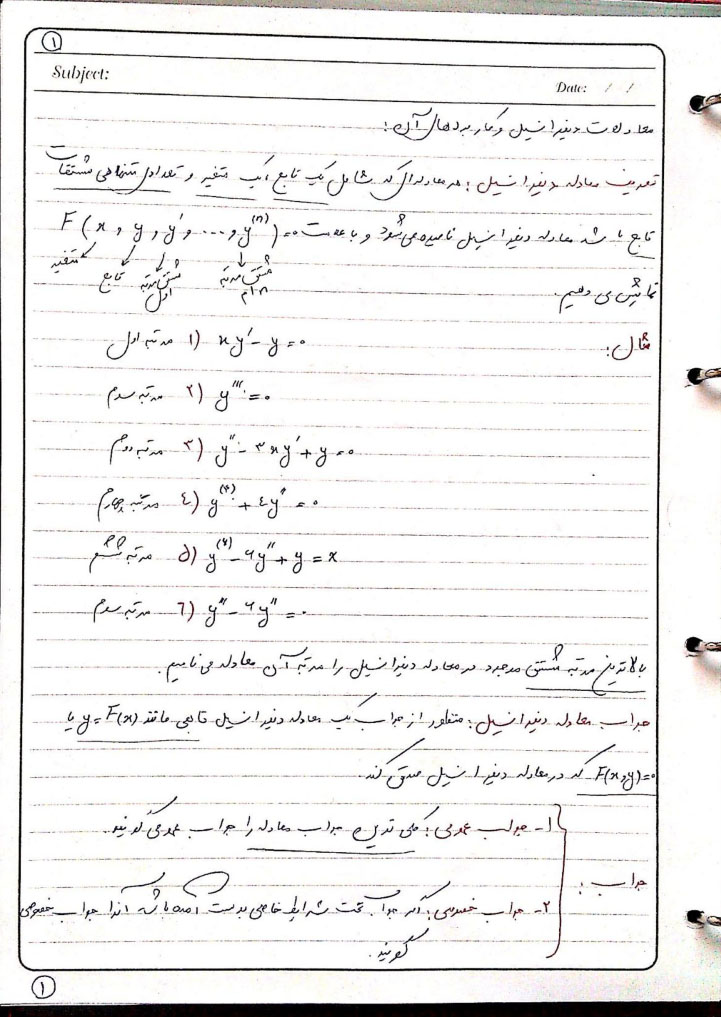 ①
Subject:
Date: / /
معادلات دیفرانسیل و کاربردهای آن:
تعریف معادله دیفرانسیل: هر معادله‌ای که شامل یک تابع، یک متغیر و تعدادی متناهی مشتقات
تابع باشد معادله دیفرانسیل نامیده می‌شود و با علامت F(x, y, y', ..., y^(n)) = 0
متغیر تابع مشتق مرتبه اول مشتق مرتبه n ام
نمایش می دهیم.
مثال:
۱) xy' - y = 0 مرتبه اول
۲) y''' = 0 مرتبه سوم
۳) y'' - ۳xy' + y = 0 مرتبه دوم
٤) y^(۴) + ٤y'' = 0 مرتبه چهارم
۵) y^(۶) - ۶y'' + y = x مرتبه ششم
٦) y''' - ۶y'' = 0 مرتبه سوم
بالاترین مرتبه مشتق موجود در معادله دیفرانسیل را مرتبه آن معادله می نامیم.
جواب معادله دیفرانسیل: منظور از جواب یک معادله دیفرانسیل تابعی مانند y = F(x) یا
F(x,y) = 0 که در معادله دیفرانسیل صدق کند.
جواب:
۱- جواب عمومی: کلی ترین جواب معادله را جواب عمومی گویند.
۲- جواب خصوصی: اگر جواب تحت شرایط خاصی بدست آمده باشد آنرا جواب خصوصی
گویند.
①